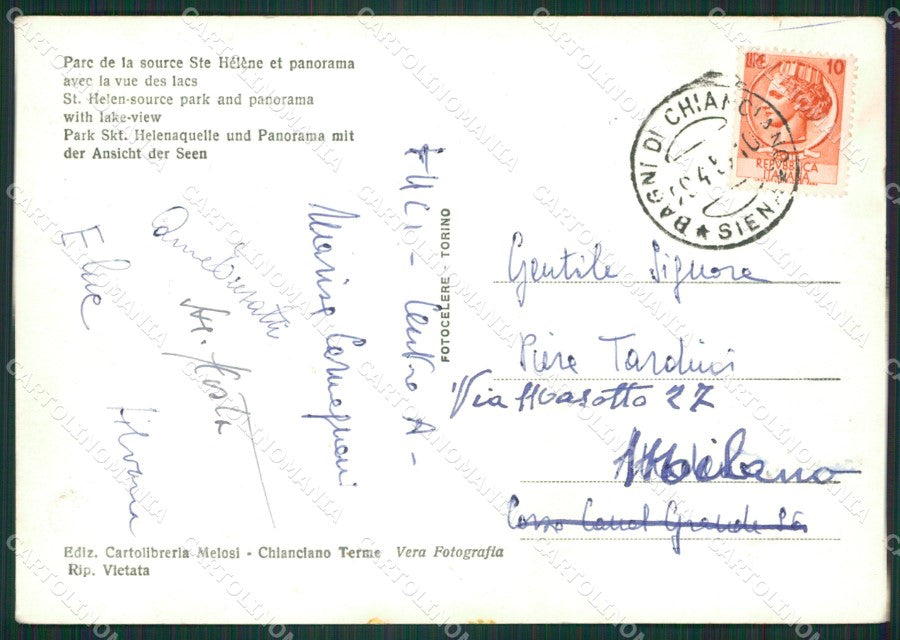 Parc de la source Ste Hélène et panorama
avec la vue des lacs
St. Helen-source park and panorama
with lake-view
Park Skt. Helenaquelle und Panorama mit
der Ansicht der Seen
LIRE 10
REPVBBLICA
ITALIANA
BAGNI DI CHIANCIANO
★ SIENA ★
Centro A -
Marisa
Silvana
FOTOCELERE - TORINO
Gentile Signora
Piera Tarduci
Via Masotto 27
Milano
Corso
Ediz. Cartolibreria Melosi - Chianciano Terme Vera Fotografia
Rip. Vietata
CARTOLINOMANIA